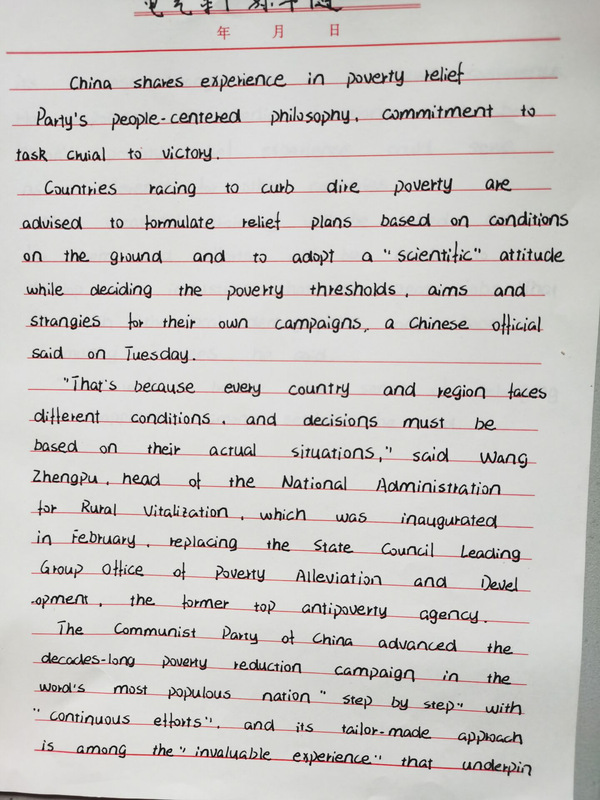 年 月 日
China shares experience in poverty relief
Party's people-centered philosophy, commitment to
task cruial to victory.
Countries racing to curb dire poverty are
advised to formulate relief plans based on conditions
on the ground and to adopt a "scientific" attitude
while deciding the poverty thresholds, aims and
strangies for their own campaigns, a Chinese official
said on Tuesday.
"That's because every country and region faces
different conditions, and decisions must be
based on their actual situations," said Wang
Zhengpu, head of the National Administration
for Rural Vitalization, which was inaugurated
in February, replacing the State Council Leading
Group Office of Poverty Alleviation and Devel
-opment, the former top antipoverty agency.
The Communist Party of China advanced the
decades-long poverty reduction campaign in the
word's most populous nation "step by step" with
"continuous efforts", and its tailor-made approach
is among the "invaluable experience" that underpin